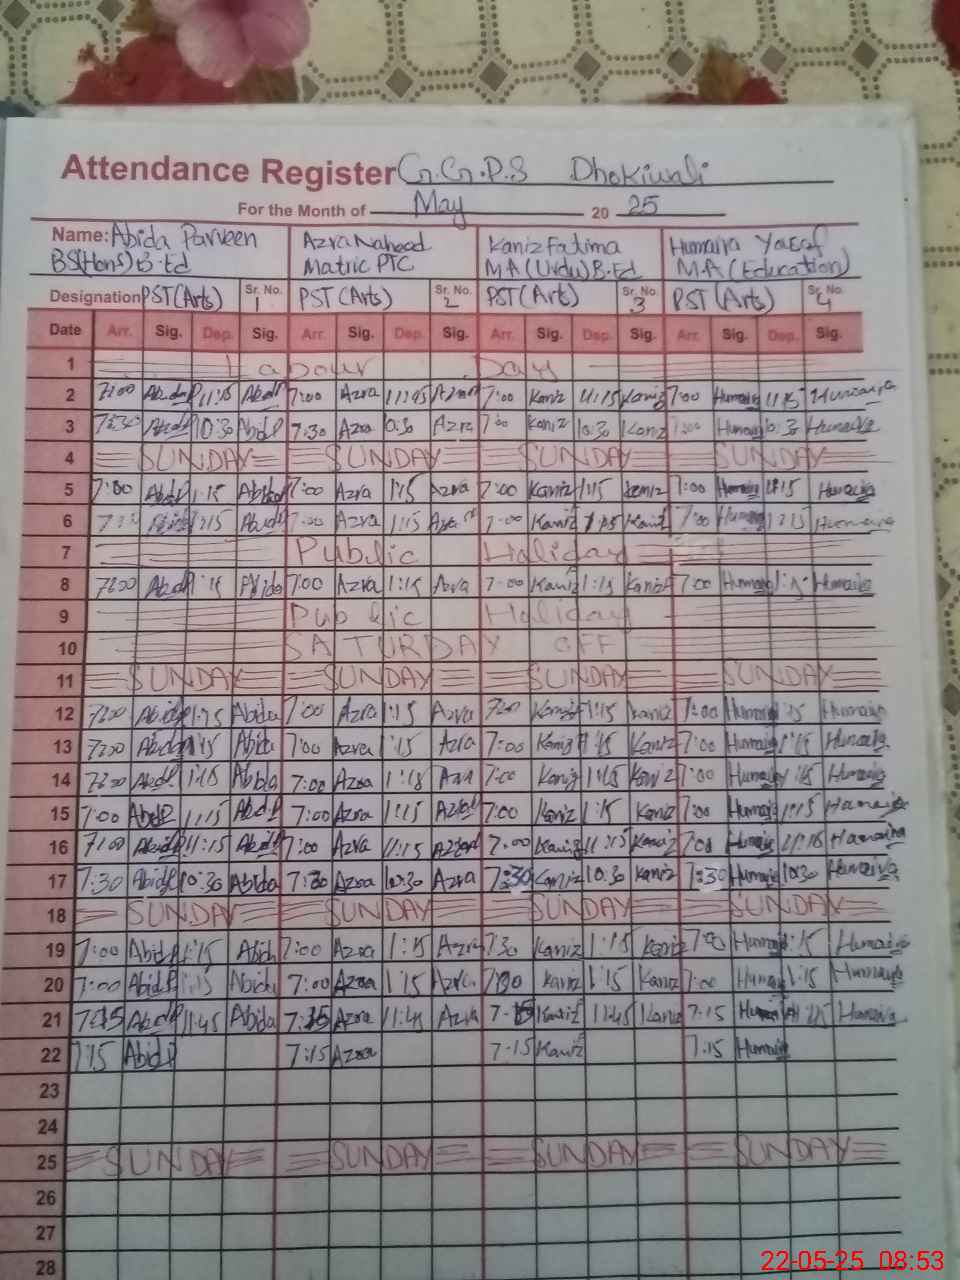 Attendance Register G.G.P.S Dhokiwali
For the Month of May 20 25
Name: Abida Parveen Azra Naheed Kaniz Fatima Humaira Yousaf
BS(Hons) B.Ed Matric PTC MA (Urdu) B.Ed MA (Education)
Designation PST (Arts) Sr. No. 1 PST (Arts) Sr. No. 2 PST (Arts) Sr. No. 3 PST (Arts) Sr. No. 4
Date Arr. Sig. Dep. Sig. Arr. Sig. Dep. Sig. Arr. Sig. Dep. Sig. Arr. Sig. Dep. Sig.
1 Labour Day
2 7:00 Abida 11:15 7:00 Azra Azra 7:00 Kaniz 11:15 Kaniz 7:00 Humaira 11:15 Humaira
3 7:30 10:30 Abida 7:30 Azra Azra 7:00 Kaniz 10:30 Kaniz 7:00 Humaira 10:30 Humaira
4 SUNDAY SUNDAY SUNDAY SUNDAY
5 7:00 1:15 Abida 7:00 Azra 1:15 Azra 7:00 Kaniz 1:15 Kaniz 7:00 Humaira 1:15 Humaira
6 1:15 7:00 Azra 1:15 Azra 7:00 Kaniz 1:15 Kaniz 7:00 Humaira 1:15 Humaira
7 Public Holiday
8 7:00 1:15 Abida 7:00 Azra 1:15 Azra 7:00 Kaniz 1:15 Kaniz 7:00 Humaira 1:15 Humaira
9 Public Holiday
10 SATURDAY OFF
11 SUNDAY SUNDAY SUNDAY SUNDAY
12 7:00 Abida 1:15 Abida 7:00 Azra 1:15 Azra 7:00 Kaniz 1:15 Kaniz 7:00 Humaira 1:15 Humaira
13 7:00 Abida 1:15 Abida 7:00 Azra 1:15 Azra 7:00 Kaniz 1:15 Kaniz 7:00 Humaira 1:15 Humaira
14 7:00 Abida 1:15 Abida 7:00 Azra 1:15 Azra 7:00 Kaniz 1:15 Kaniz 7:00 Humaira 1:15 Humaira
15 7:00 Abida 1:15 Abida 7:00 Azra 1:15 Azra 7:00 Kaniz 1:15 Kaniz 7:00 Humaira 1:15 Humaira
16 7:00 Abida 11:15 Abida 7:00 Azra 11:15 Azra 7:00 Kaniz 11:15 Kaniz Humaira Humaira
17 7:30 Abida 10:30 Abida 7:30 Azra 10:30 Azra 7:30 Kaniz 10:30 Kaniz 7:30 Humaira 10:30 Humaira
18 SUNDAY SUNDAY SUNDAY SUNDAY
19 7:00 Abida 1:15 Abida 7:00 Azra 1:15 Azra 7:30 Kaniz 1:15 Kaniz 7:00 Humaira 1:15 Humaira
20 7:00 Abida 1:15 Abida 7:00 Azra 1:15 Azra Kaniz 1:15 Kaniz 7:00 Humaira 1:15 Humaira
21 7:15 Abida 11:45 Abida 7:15 Azra 11:45 Azra 7-15 Kaniz 11:45 Kaniz 7-15 Humaira Humaira
22 7:15 Abida 7:15 Azra 7-15 Kaniz 7.15 Humaira
23
24
25 SUNDAY SUNDAY SUNDAY SUNDAY
26
27
28
22-05-25 08:53